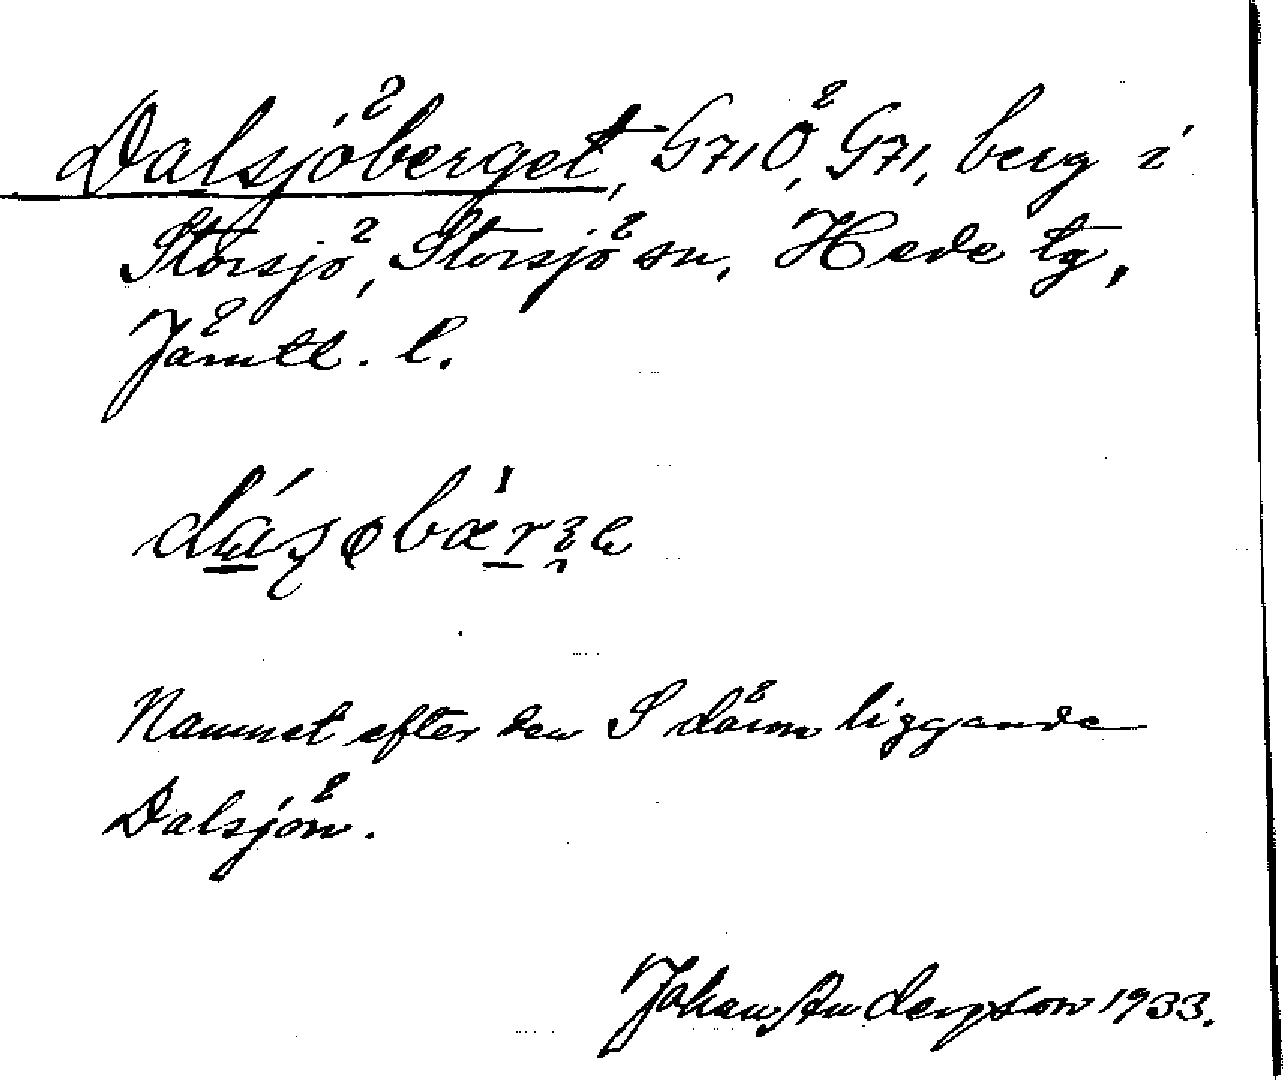 Dalsjöberget, G71Ö, G71, berg i
Storsjö, Storsjö sn, Hede tg,
Jämtl. l.
Namnet efter den S därom liggande
Dalsjön.
Johan Anderſson 1933.